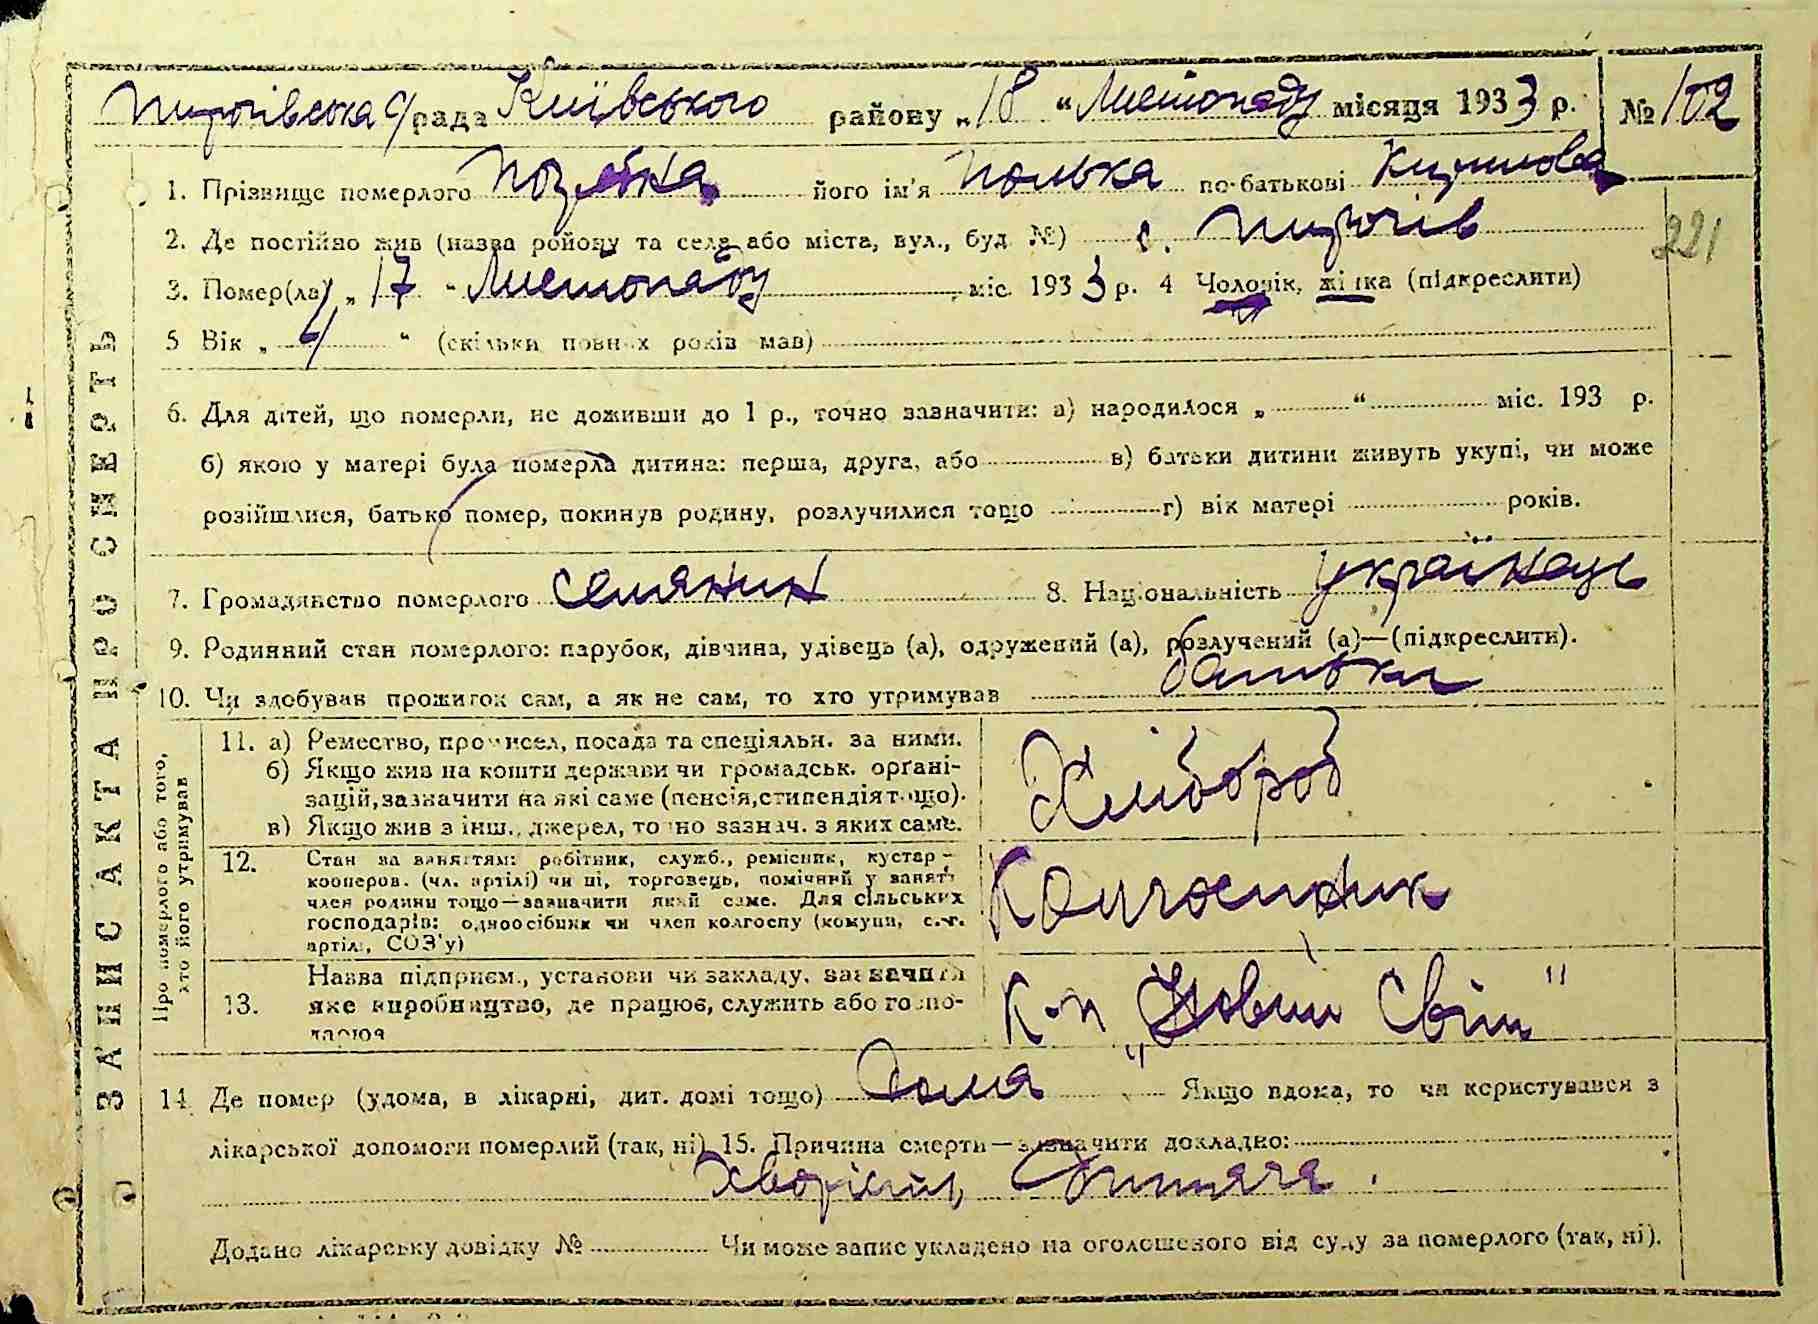 Пирогівська с/рада Київського району „18 “ Листопаду місяця 1933 р. № 102
1. Прізвище померлого його ім'я Полька по-батькові
2. Де постійно жив (назва району та села або міста, вул., буд №) с. Пирогів
221
3. Помер(ла) „ 17 “ Листопаду міс. 1933 р. 4 Чоловік, жінка (підкреслити)
5 Вік „ “ (скільки повних років мав)
6. Для дітей, що померли, не доживши до 1 р., точно зазначити: а) народилося „ “ міс. 193 р.
б) якою у матері була померла дитина: перша, друга, або в) батьки дитини живуть укупі, чи може
розійшлися, батько помер, покинув родину, розлучилися тощо г) вік матері років.
7. Громадянство померлого селянин 8. Національність українець
9. Родинний стан померлого: парубок, дівчина, удівець (а), одружений (а), розлучений (а)—(підкреслити).
10. Чи здобував прожиток сам, а як не сам, то хто утримував батьки
ЗАПИС АКТА ПРО СМЕРТЬ
Про померлого або того, хто його утримував
11. а) Ремество, промисел, посада та спеціяльн. за ними.
б) Якщо жив на кошти держави чи громадськ. органі-
зацій, зазначити на які саме (пенсія, стипендія тощо).
в) Якщо жив з інш., джерел, точно зазнач. з яких саме.
Хлібороб
12. Стан за заняттям: робітник, служб., ремісник, кустар -
кооперов. (чл. артілі) чи ні, торговець, помічний у занят.
член родини тощо—зазначити який саме. Для сільських
господарів: одноосібник чи член колгоспу (комуни, с.-г.
артілі, СОЗ'у)
Колгоспник
13. Назва підприєм., установи чи закладу, зазначити
яке виробництво, де працює, служить або госпо-
дарює
к-п „Новий Світ"
14. Де помер (удома, в лікарні, дит. домі тощо) Дома Якщо вдома, то чи користувався з
лікарської допомоги померлий (так, ні) 15. Причина смерти—зазначити докладно:
Хворість Дитяча.
Додано лікарську довідку № Чи може запис укладено на оголошеного від суду за померлого (так, ні).